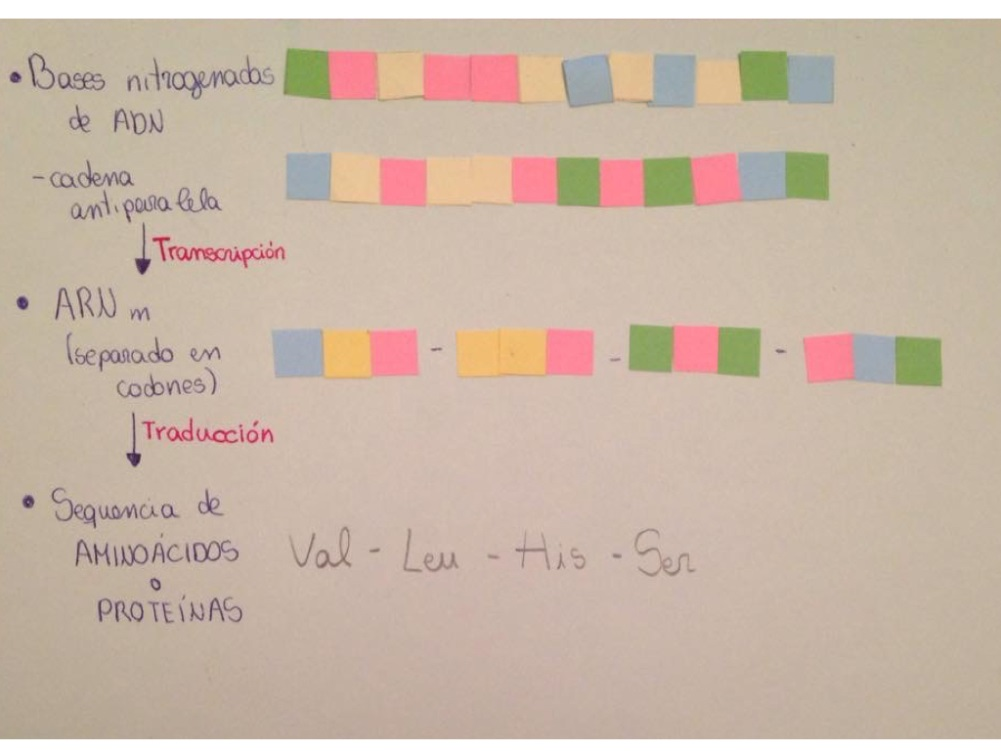 • Bases nitrogenadas
de ADN
- cadena
antiparalela
Transcripción
• ARN m
(separado en
codones)
Traducción
• Sequencia de
AMINOÁCIDOS
o
PROTEÍNAS
Val - Leu - His - Ser